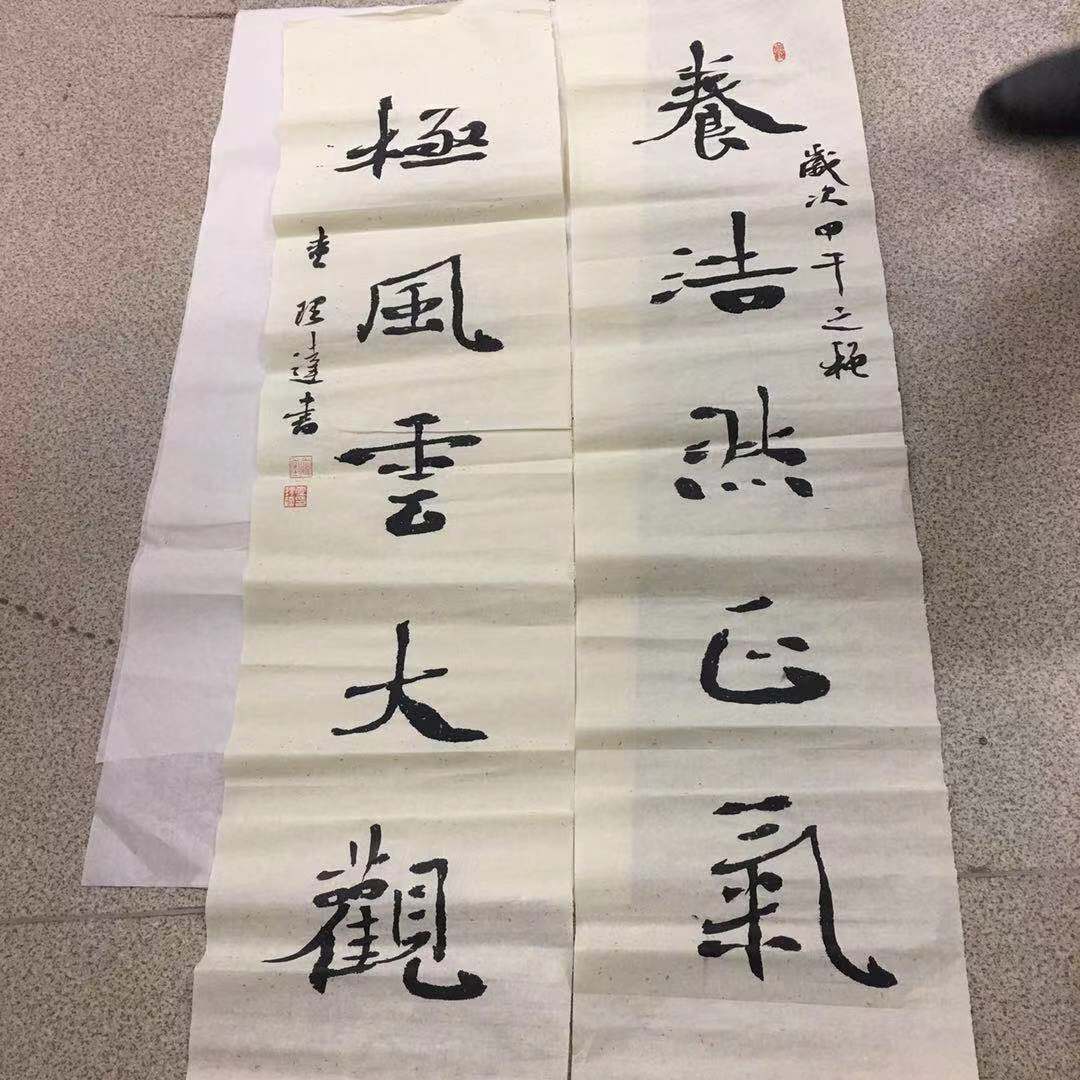 歲次甲午之
養浩然正氣
極風雲大觀
達書